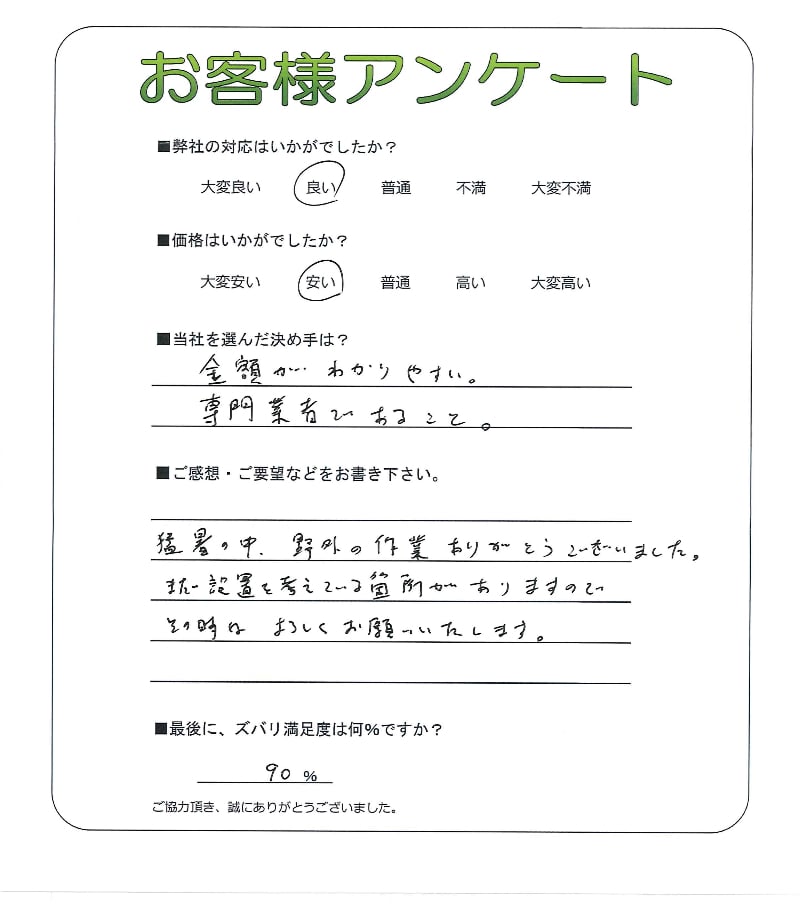 お客様アンケート
■弊社の対応はいかがでしたか？
大変良い 良い 普通 不満 大変不満
■価格はいかがでしたか？
大変安い 安い 普通 高い 大変高い
■当社を選んだ決め手は？
金額が わかりやすい。
専門業者であること。
■ご感想・ご要望などをお書き下さい。
猛暑の中、野外の作業ありがとうございました。
まだ設置を考えている箇所がありますので
その時は よろしくお願いいたします。
■最後に、ズバリ満足度は何％ですか？
90 %
ご協力頂き、誠にありがとうございました。